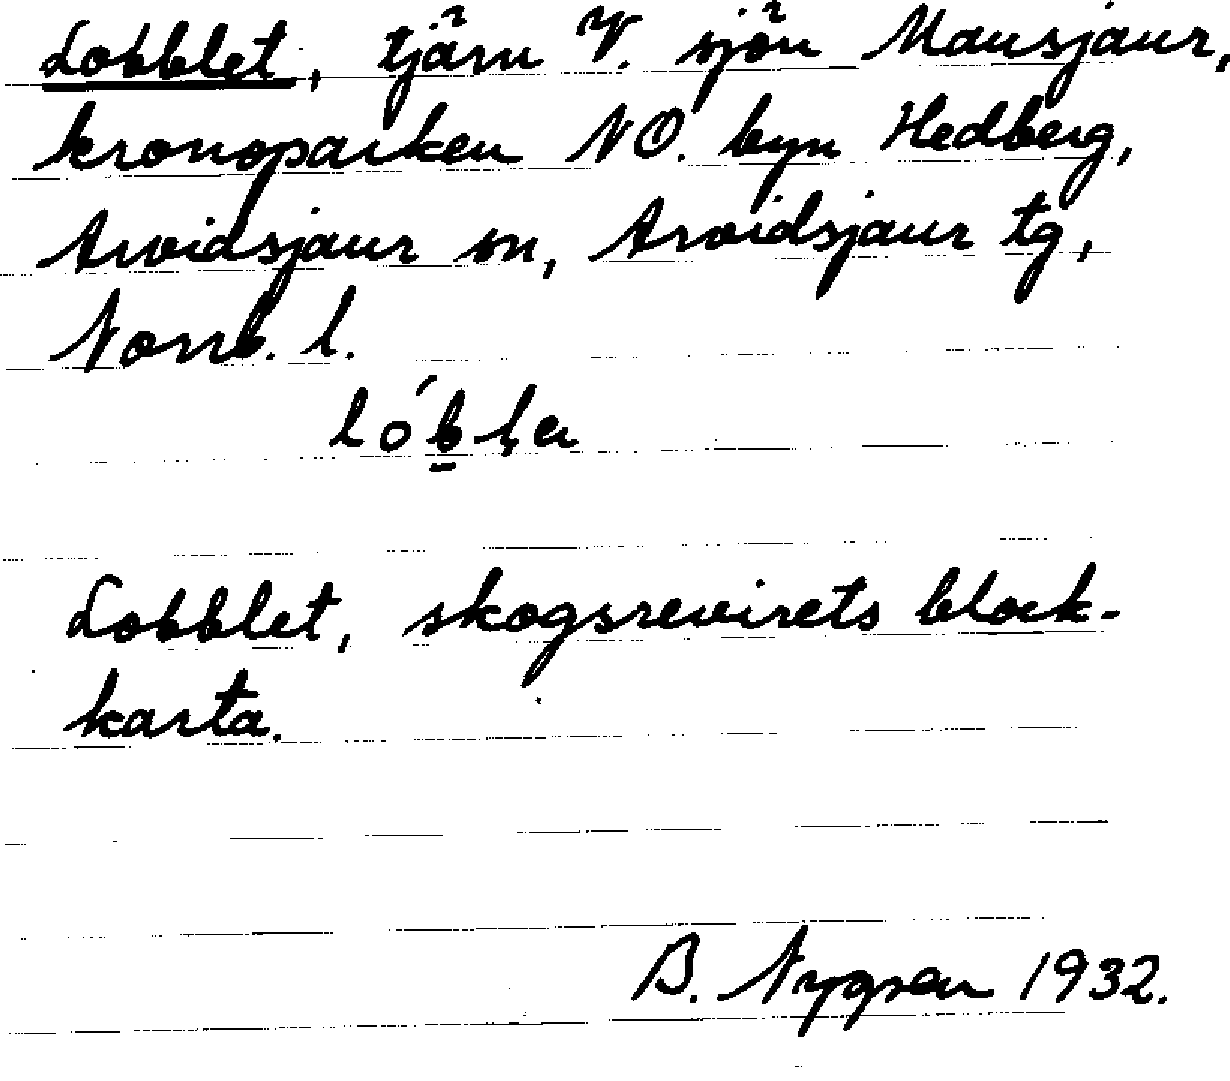 Lobblet, tjärn V. sjön Mausjaur,
kronoparken NO. byn Hedberg,
Arvidsjaur sn, Arvidsjaur tg,
Norrb. l.
Lobblet, skogsrevirets block-
karta.
B. Nygren 1932.